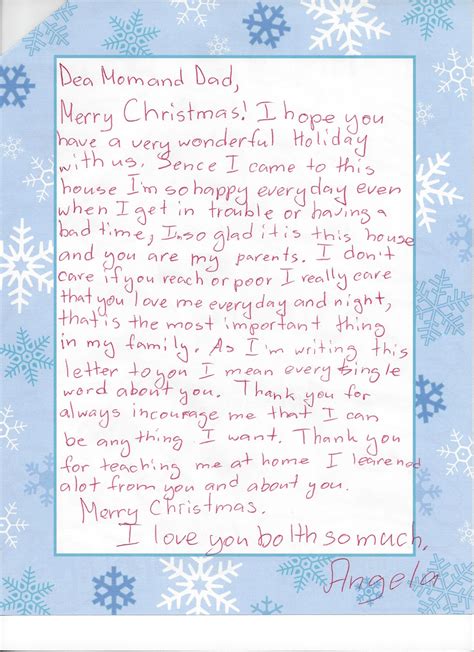 Dea Mom and Dad,
Merry Christmas! I hope you
have a very wonderful Holiday
with us. Sence I came to this
house I'm so happy everyday even
when I get in trouble or having a
bad time, I'm so glad it is this house
and you are my parents. I don't
care if you reach or poor I really care
that you love me everyday and night,
that's the most important thing
in my family. As I'm writing this
letter to you I mean every single
word about you. Thank you for
always incourage me that I can
be anything I want. Thank you
for teaching me at home I learened
alot from you and about you.
Merry Christmas.
I love you bolth so much,
Angela